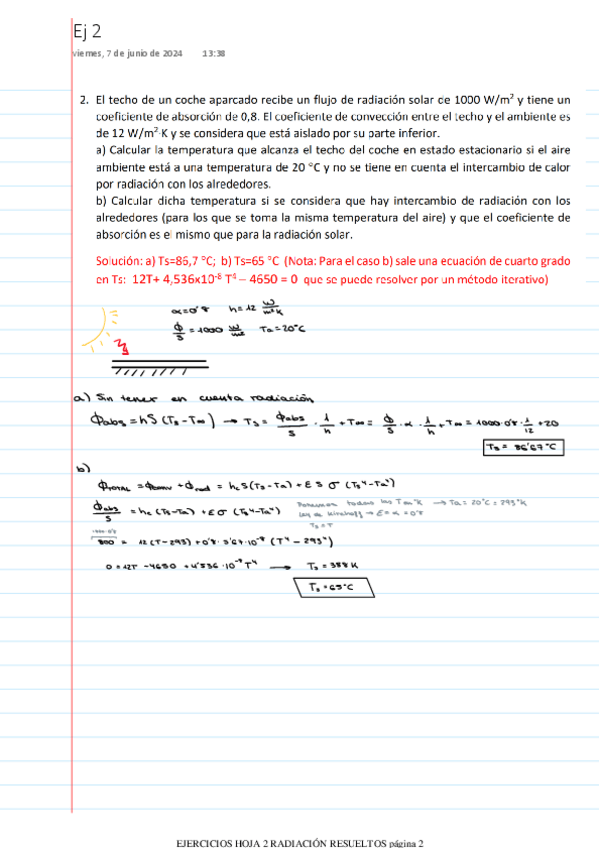 Ej 2
viernes, 7 de junio de 2024 13:38
2. El techo de un coche aparcado recibe un flujo de radiación solar de 1000 W/m² y tiene un
coeficiente de absorción de 0,8. El coeficiente de convección entre el techo y el ambiente es
de 12 W/m² K y se considera que está aislado por su parte inferior.
a) Calcular la temperatura que alcanza el techo del coche en estado estacionario si el aire
ambiente está a una temperatura de 20 °C y no se tiene en cuenta el intercambio de calor
por radiación con los alrededores.
b) Calcular dicha temperatura si se considera que hay intercambio de radiación con los
alrededores (para los que se toma la misma temperatura del aire) y que el coeficiente de
absorción es el mismo que para la radiación solar.
Solución: a) Ts=86,7 °C; b) Ts=65 °C (Nota: Para el caso b) sale una ecuación de cuarto grado
en Ts: 12T+ 4,536x10⁻⁸ T⁴ – 4650 = 0 que se puede resolver por un método iterativo)
α=0'8 h=12 W/m²K
Φ/S = 1000 W/m² Ta=20°C
a) Sin tener en cuenta radiación
Φabs = hS (Ts - T∞) → Ts = Φabs/S · 1/h + T∞ = Φ/S · α · 1/h + T∞ = 1000·0'8 · 1/12 + 20
Ts = 86'67°C
b)
ΦTOTAL = Φconv + Φrad = hc S(Ts-Ta) + ε S σ (Ts⁴-Ta⁴)
Φabs/S = hc (Ts-Ta) + εσ (Ts⁴-Ta⁴) Ponemos todas las T en K → Ta = 20°C = 293°K
Ley de Kirchhoff → ε = α = 0'8
Ts = T
1000·0'8
800 = 12 (T-293) + 0'8 · 5'67·10⁻⁸ (T⁴ - 293⁴)
0 = 12T - 4650 + 4'536 · 10⁻⁸ T⁴ → Ts = 338 K
Ts = 65°C
EJERCICIOS HOJA 2 RADIACIÓN RESUELTOS página 2